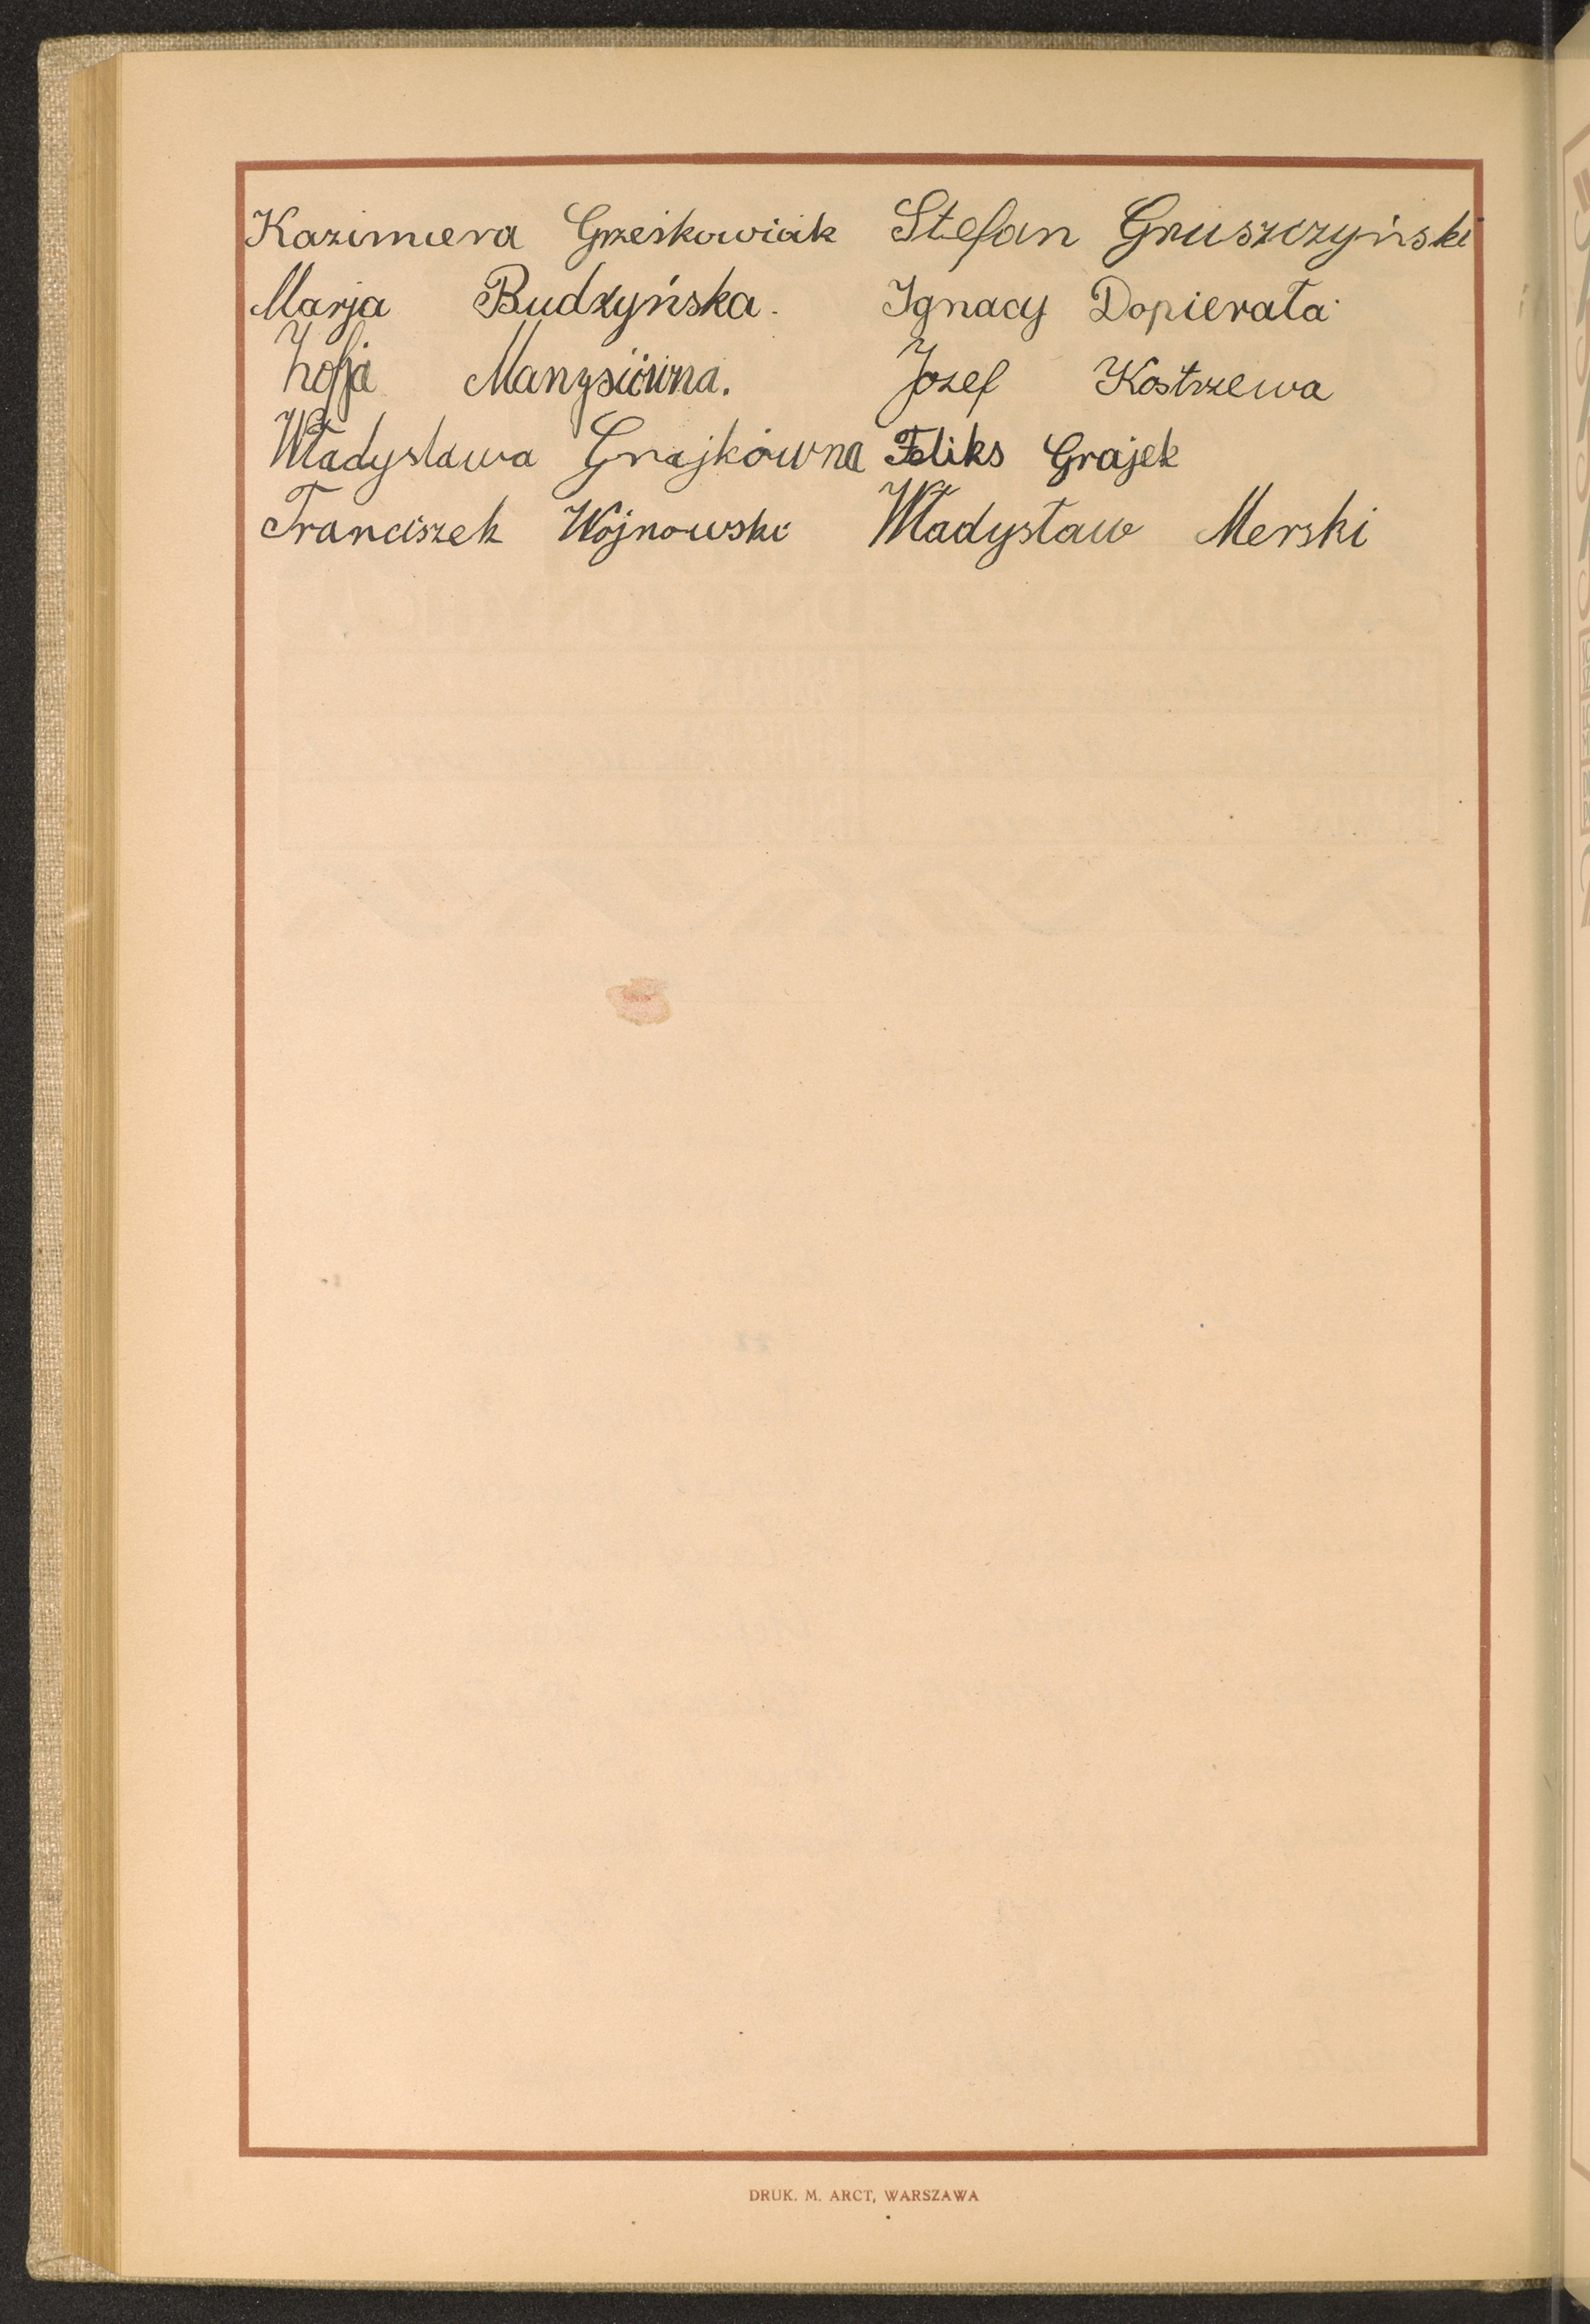 Kazimiera Grześkowiak Stefan Gruszczyński
Marja Budzyńska. Ignacy Dopierała
Zofja Manysiówna. Józef Kostrzewa
Władysława Grajkówna Feliks Grajek
Franciszek Wojnowski Władysław Merski
DRUK. M. ARCT, WARSZAWA